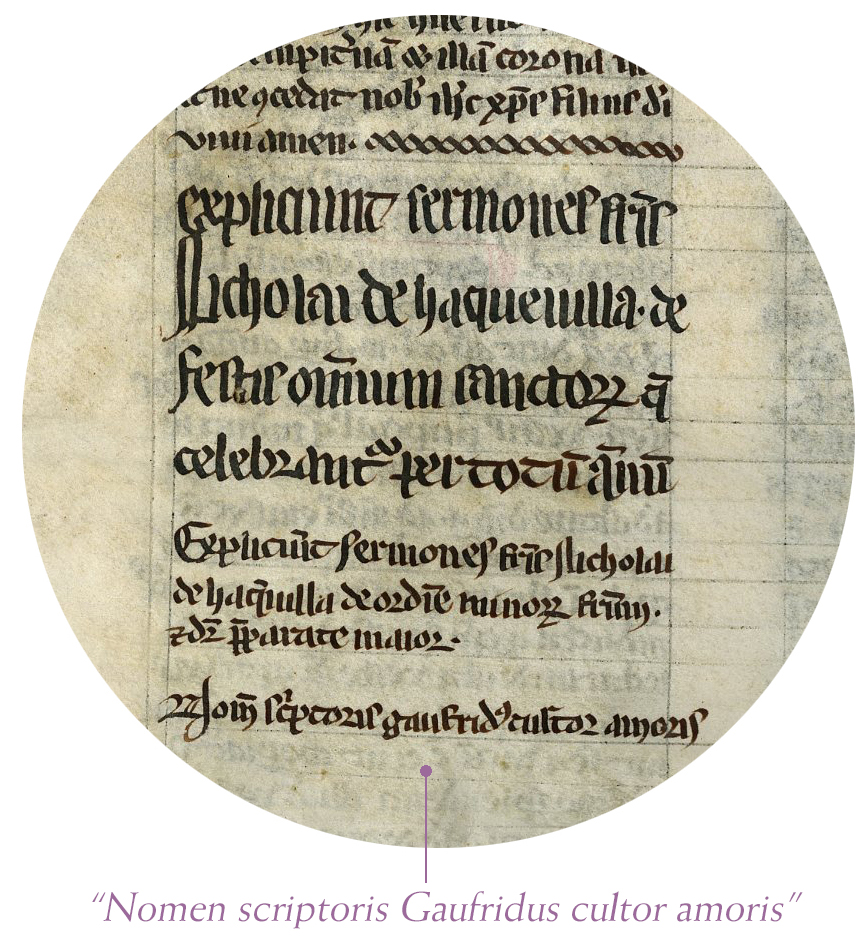 & illā corona
ꝯcedat nob ih̄c xp̄c filius dī
viui amen.
expliciunt sermones fr̄is
Nicholai de haqueuilla. de
festis om̄ium sanctoꝝ q̄
celebrant᷑ per totū ānū
Expliciūt sermones fr̄is Nicholai
de haq̄uilla de ordīe minoꝝ fr̄um.
⁊ dr̄ p̄parate maior.
Nom̄ scͥptoris gaufridꝰ cultor amoris
“Nomen scriptoris Gaufridus cultor amoris”